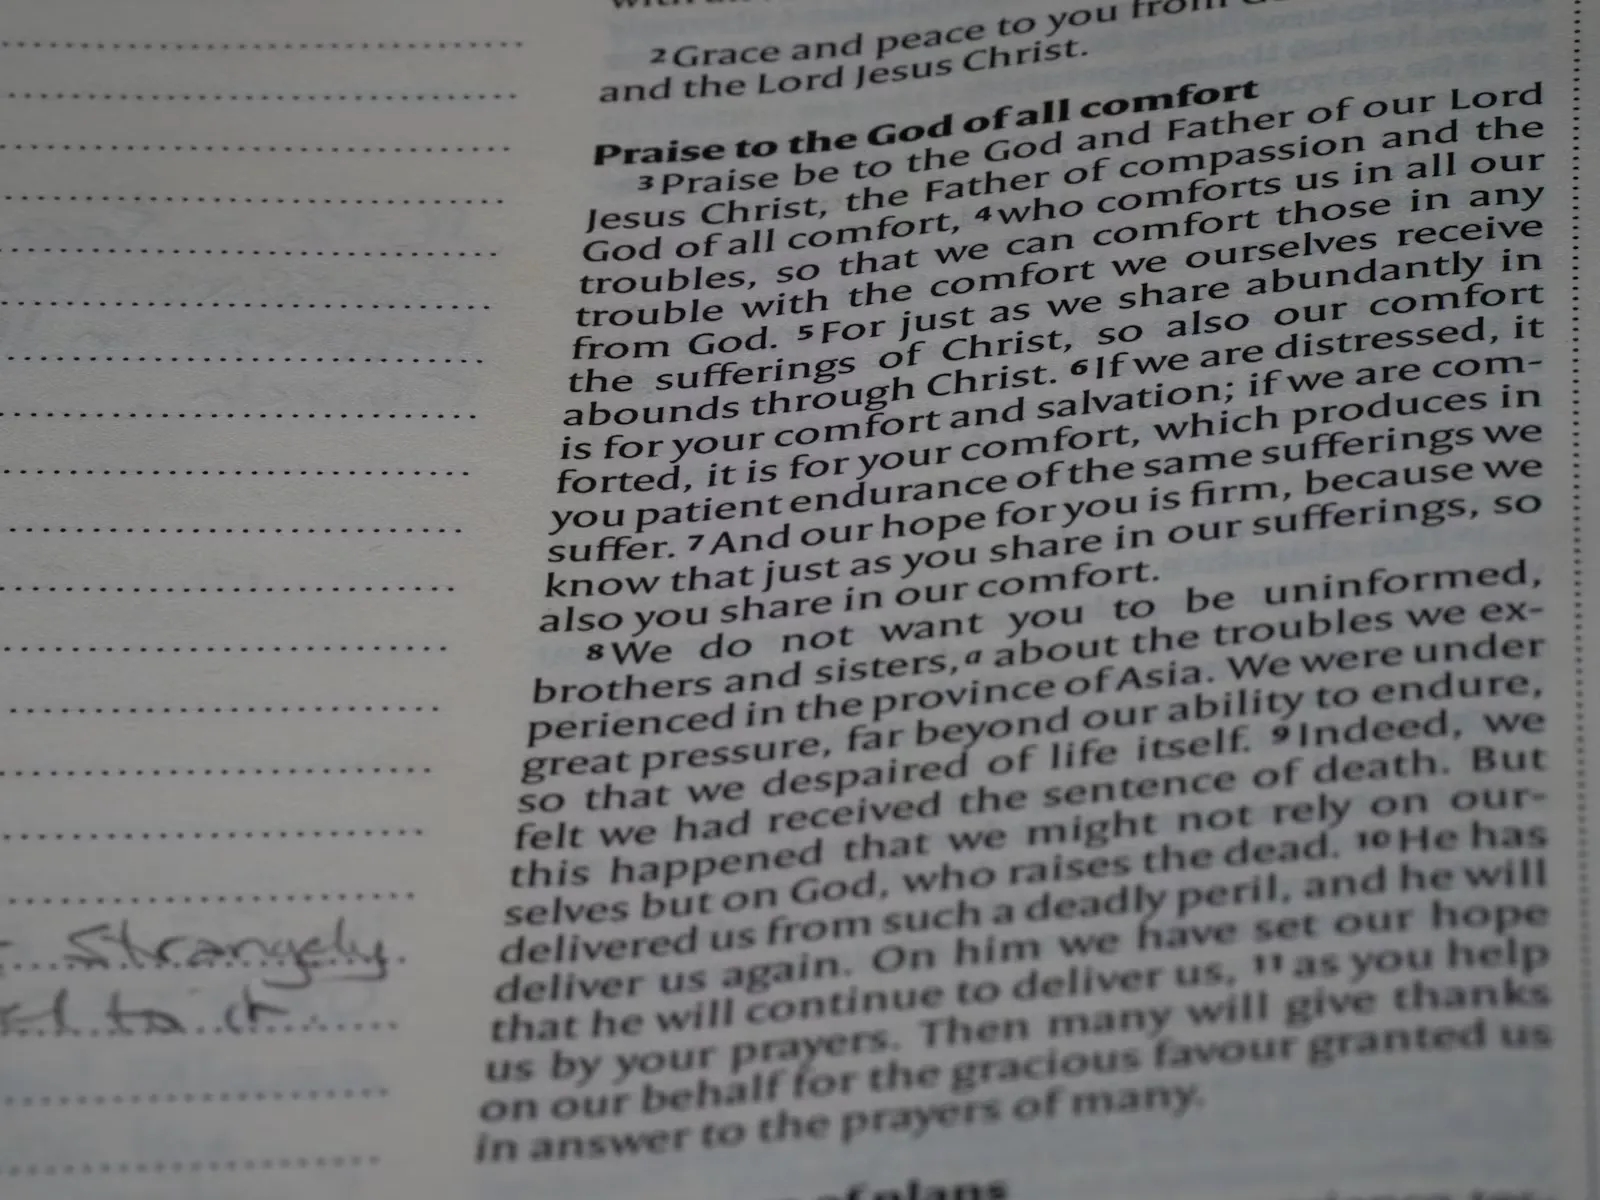 2 Grace and peace to you from
and the Lord Jesus Christ.
Praise to the God of all comfort
3 Praise be to the God and Father of our Lord
Jesus Christ, the Father of compassion and the
God of all comfort, 4 who comforts us in all our
troubles, so that we can comfort those in any
trouble with the comfort we ourselves receive
from God. 5 For just as we share abundantly in
the sufferings of Christ, so also our comfort
abounds through Christ. 6 If we are distressed, it
is for your comfort and salvation; if we are com-
forted, it is for your comfort, which produces in
you patient endurance of the same sufferings we
suffer. 7 And our hope for you is firm, because we
know that just as you share in our sufferings, so
also you share in our comfort.
8 We do not want you to be uninformed,
brothers and sisters, a about the troubles we ex-
perienced in the province of Asia. We were under
great pressure, far beyond our ability to endure,
so that we despaired of life itself. 9 Indeed, we
felt we had received the sentence of death. But
this happened that we might not rely on our-
selves but on God, who raises the dead. 10 He has
delivered us from such a deadly peril, and he will
deliver us again. On him we have set our hope
that he will continue to deliver us, 11 as you help
us by your prayers. Then many will give thanks
on our behalf for the gracious favour granted us
in answer to the prayers of many.
of plans
Strangely
to it